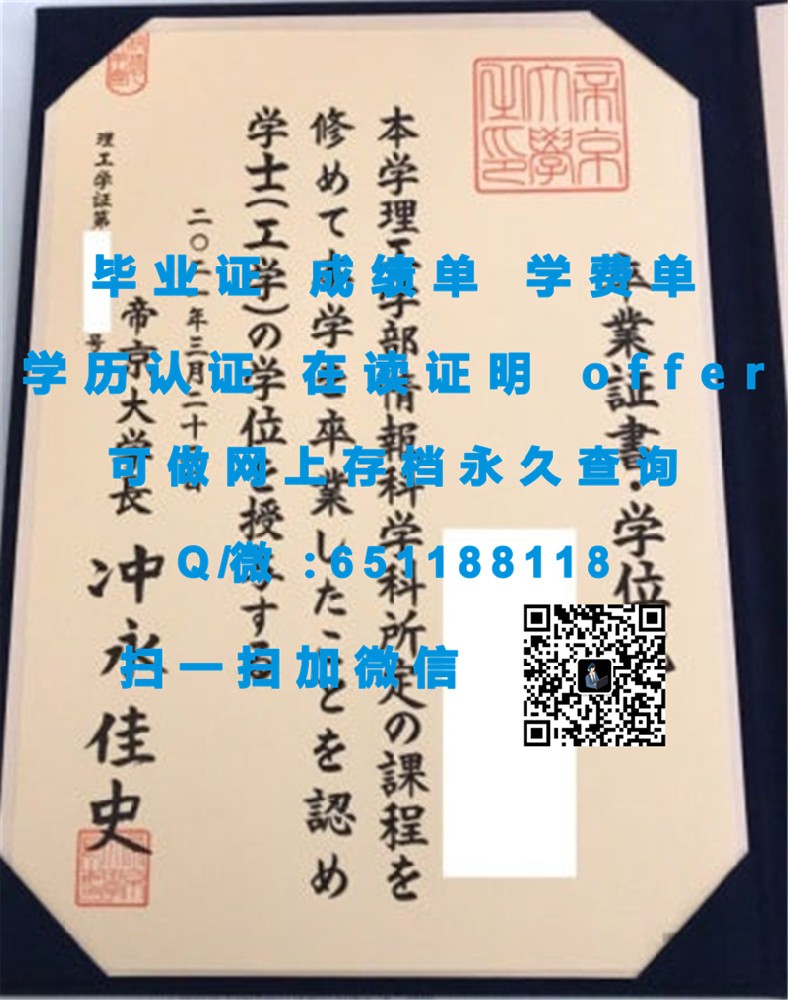 帝京大學之印
卒業証書・学位
本学理工学部情報科学科所定の課程を
修めて本学を卒業したことを認め
学士(工学)の学位を授与する
二〇二一年三月二十
理工学証第 号
帝京大学長 冲永佳史
毕业证 成绩单 学费单
学历认证 在读证明 offer
可做网上存档永久查询
Q/微:651188118
扫一扫加微信